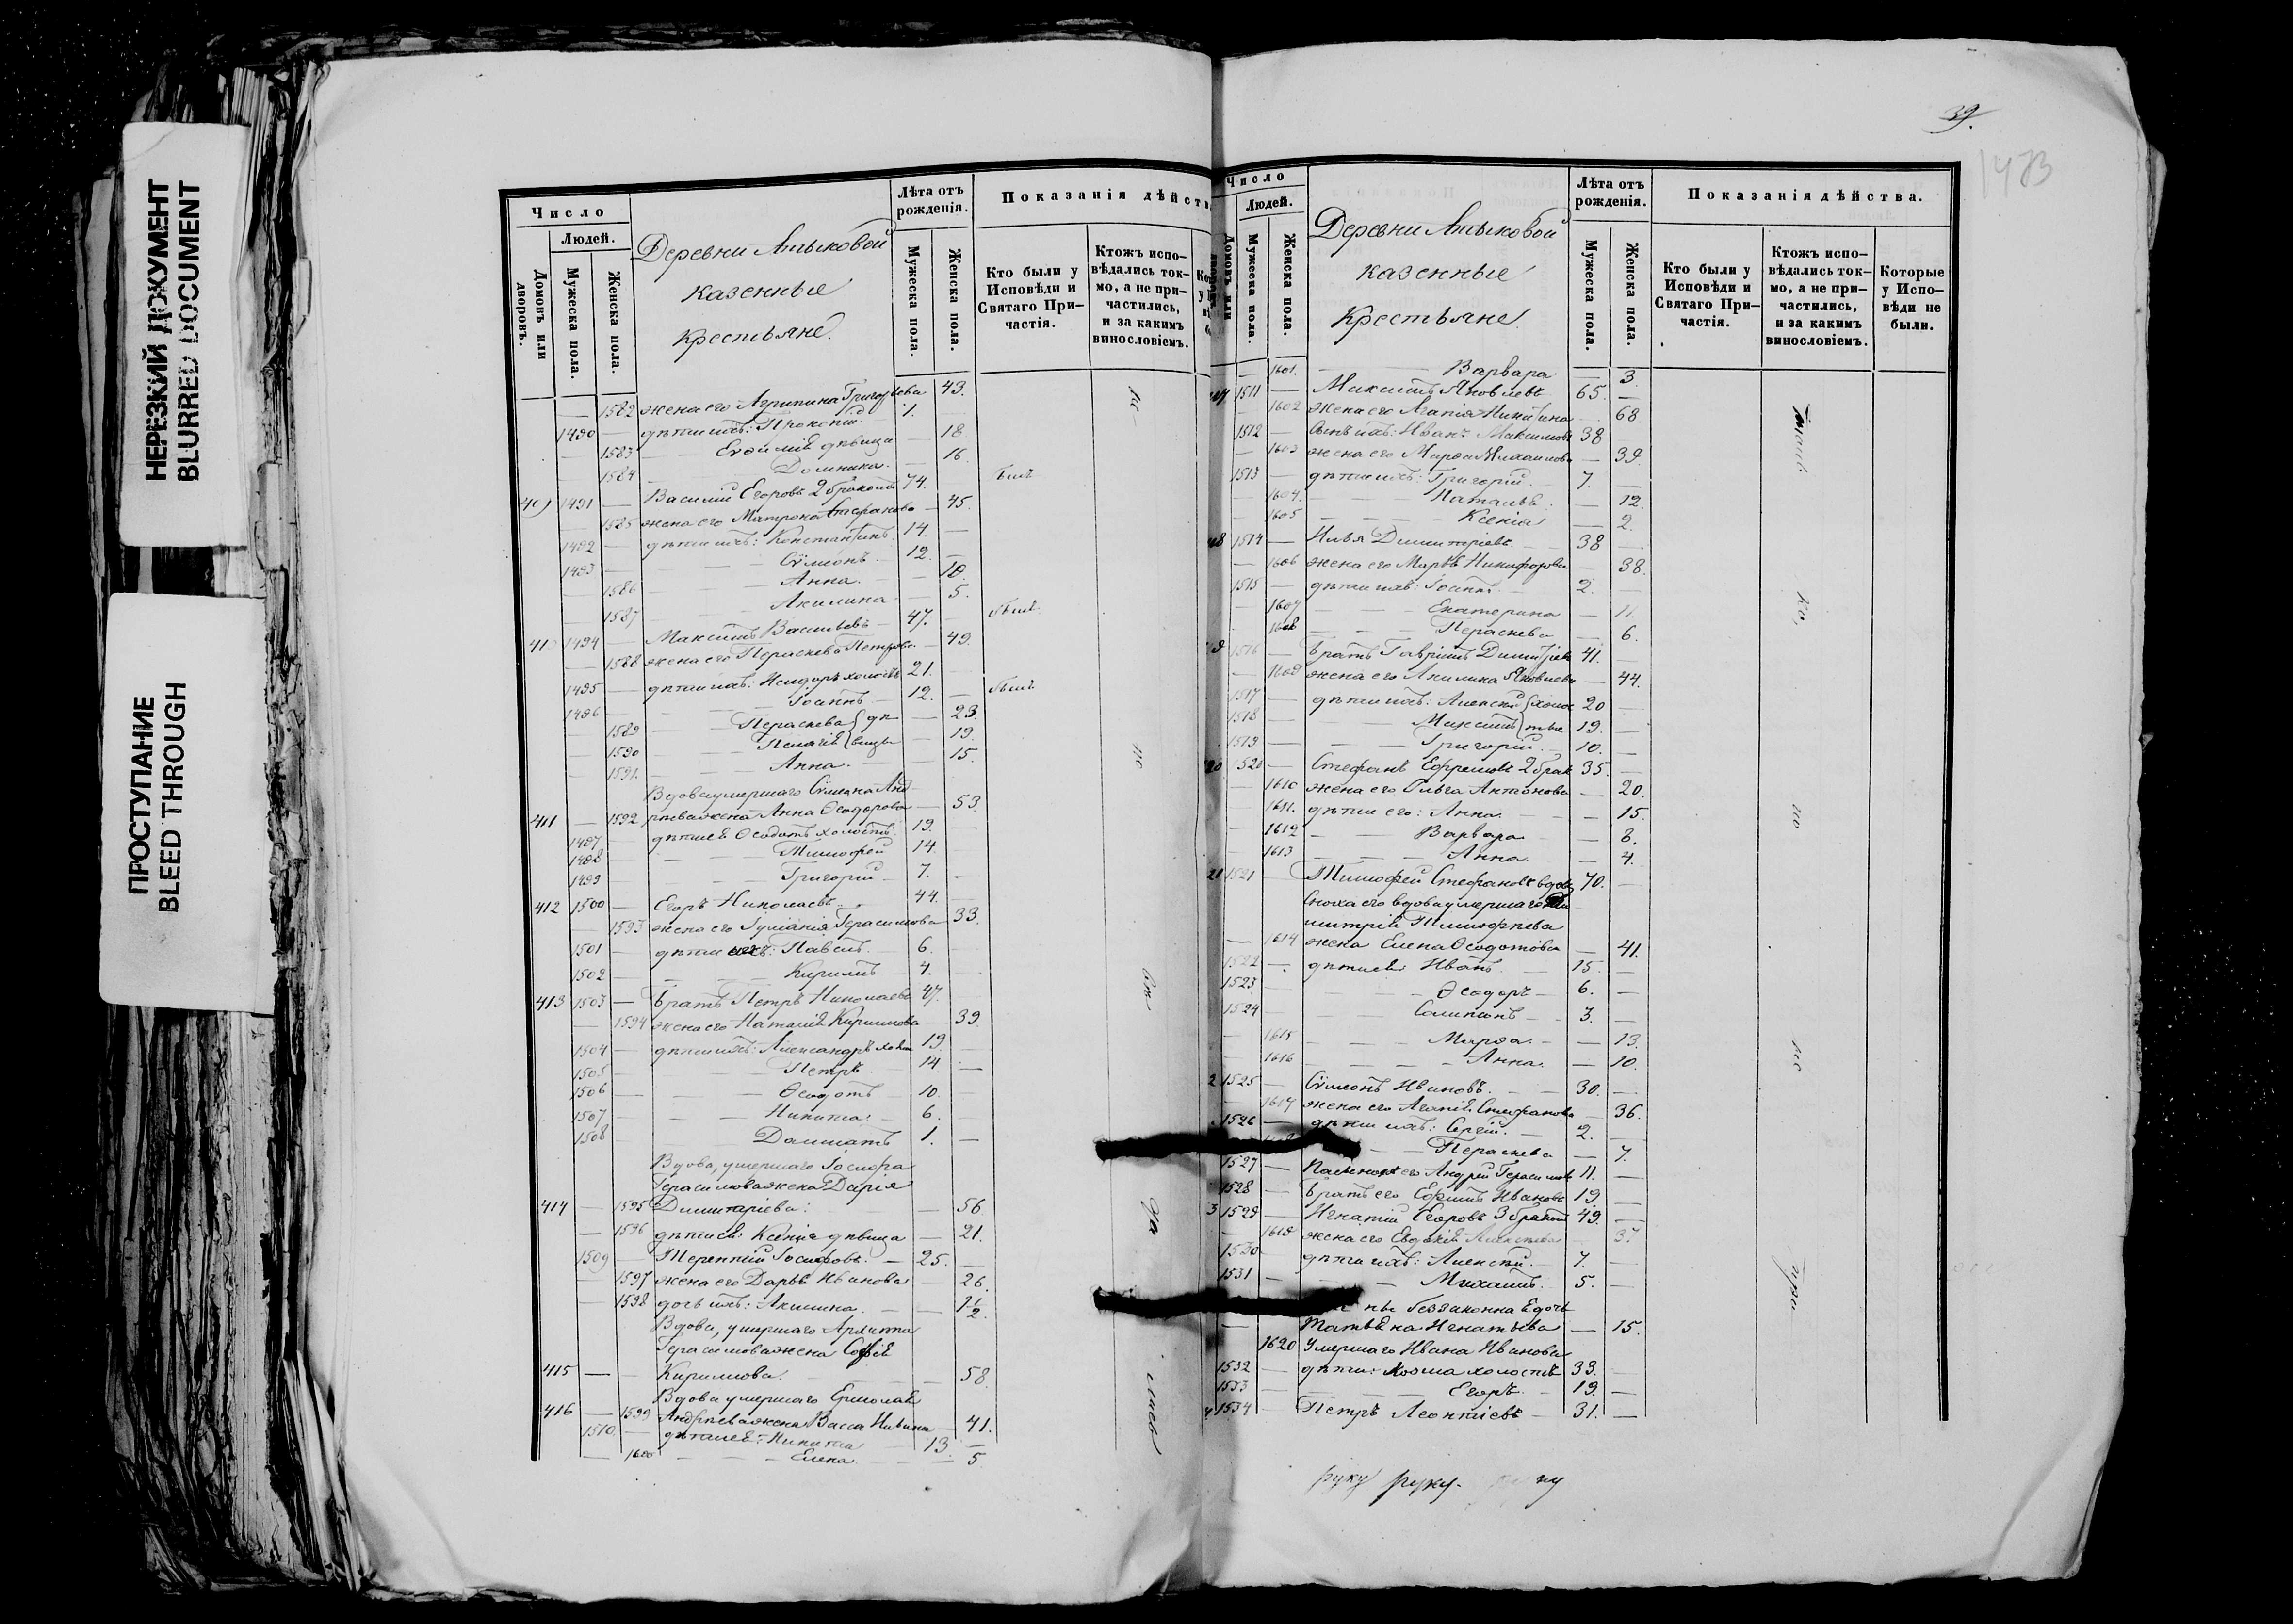 НЕРЕЗКИЙ ДОКУМЕНТ
BLURRED DOCUMENT
ПРОСТУПАНИЕ
BLEED THROUGH
Число
Людей.
Домовъ или дворовъ.
Мужеска пола.
Женска пола.
Деревни
казенные
крестьяне.
Лѣта отъ рожденія.
Мужеска пола.
Женска пола.
Показанія дѣйств
Кто были у Исповѣди и Святаго При-частія.
Ктожъ испо-вѣдались ток-мо, а не при-частились, и за какимъ винословіемъ.
1582 жена его Агрипина Григорьева 43.
1490 дѣти ихъ: Прокопій 1.
1583 Евѳимія дѣвица 18
1584 Домника. 16.
409 1491 Василій Егоровъ 2 бракомъ 74. былъ
1585 жена его Матрона Стефанова 45.
1492 дѣти ихъ: Константинъ. 14.
1493 Сѵмеонъ 12.
1586 Анна. 10.
1587 Акилина 5.
410 1494 Максимъ Васильевъ 47. былъ
1588 жена его Параскева Петрова 49.
1495 дѣти ихъ: Исидоръ холостъ 21.
1496 Іоаннъ 12. былъ
1589 Параскева дѣ 23.
1590 Пелагія вицы 19.
1591. Анна. 15.
Вдова умершаго Сѵмеона Анд
411 1592 реева жена Анна Ѳеодорова 53.
1497 дѣти ея Ѳеодотъ холостъ. 19.
1498 Тимофей 14.
1499 Григорій 7.
412 1500 Егоръ Николаевъ. 44.
1593 жена его Іуліанія Герасимова 33.
1501 дѣти ихъ: Павелъ. 6.
1502 Кирилъ 4.
413 1503 братъ Петръ Николаевъ 47.
1594 жена его Наталія Кирилова 39.
1504 дѣти ихъ: Александръ холос 19.
1505 Петръ 14.
1506 Ѳеодотъ 10.
1507 Никита 6.
1508 Далматъ 1.
Вдова, умершаго Іосифа
Герасимова жена Дарья
414 1595 Димитріева: 56.
1596 дѣти ея: Ксенія дѣвица 21.
1509 Терентій Іосифовъ. 25.
1597 жена его Дарья Иванова 26.
1598 дочь ихъ: Акилина. 1 1/2.
Вдова, умершаго Архиппа
Герасимова жена Софія
415 Кирилова. 58.
Вдова умершаго Ермолая
416 1599 Андреева жена Васса 41.
1510 дѣти ея: Никита 13.
1600 Елена. 5.
39.
1473
Число
Людей.
Домовъ или дворовъ.
Мужеска пола.
Женска пола.
Деревни
казенные
Крестьяне.
Лѣта отъ рожденія.
Мужеска пола.
Женска пола.
Показанія дѣйства.
Кто были у Исповѣди и Святаго При-частія.
Ктожъ испо-вѣдались ток-мо, а не при-частились, и за какимъ винословіемъ.
Которые у Испо-вѣди не были.
1601. Варвара 3.
1511 Максимъ Яковлевъ 65.
1602 жена его Агапія Никитина 68
1512 Сынъ ихъ: Иванъ Максимовъ 38
1603 жена его Марѳа Михаилова 39.
1513 дѣти ихъ: Григорій. 7.
1604. Наталья 12.
1605 Ксенія 2.
1514 Илья Димитріевъ 38
1606 жена его Марья Никифорова 38.
1515 дѣти ихъ: Іоаннъ. 2.
1607 Екатерина 11.
1608 Параскева 6.
1516 братъ Гавріилъ Димитріевъ 41.
1609 жена его Акилина Яковлева 44.
1517 дѣти ихъ: Алексій холос 20
1518 Максимъ тые 19.
1519 Григорій. 10.
1520 Стефанъ Ефремовъ 2 брак 35.
1610 жена его Ольга Антонова 20.
1611. дѣти его: Анна. 15.
1612 Варвара 8.
1613 Анна. 4.
21 1521 Тимофей Стефановъ вдовъ 70.
Сноха его вдова умершаго Ди
митрія Тимофеева
1614 жена Елена Ѳеодотова 41.
1522 дѣти ея: Иванъ. 15.
1523 Ѳеодоръ 6.
1524 Сампсонъ 3.
1615 Марѳа. 13.
1616 Анна. 10.
1525 Сѵмеонъ Ивановъ. 30.
1617 жена его Агапія Стефанова 36.
1526 дѣти ихъ: Сергій. 2.
Параскева 7.
1527 его Андрей Герасимовъ 11.
1528 братъ его Ефимъ Ивановъ 19.
1529 Игнатій Егоровъ 3 бракомъ 49.
1619 жена его Евдокія 37
1530 дѣти ихъ: Алексій. 7.
1531 Михаилъ. 5.
беззаконная дочь
Татьяна Игнатьева 15.
1620 Умершаго Ивана Иванова
1532 дѣти: Козма холостъ 33.
1533 Егоръ. 19.
1534 Петръ Леонтіевъ 31.
руку руку.